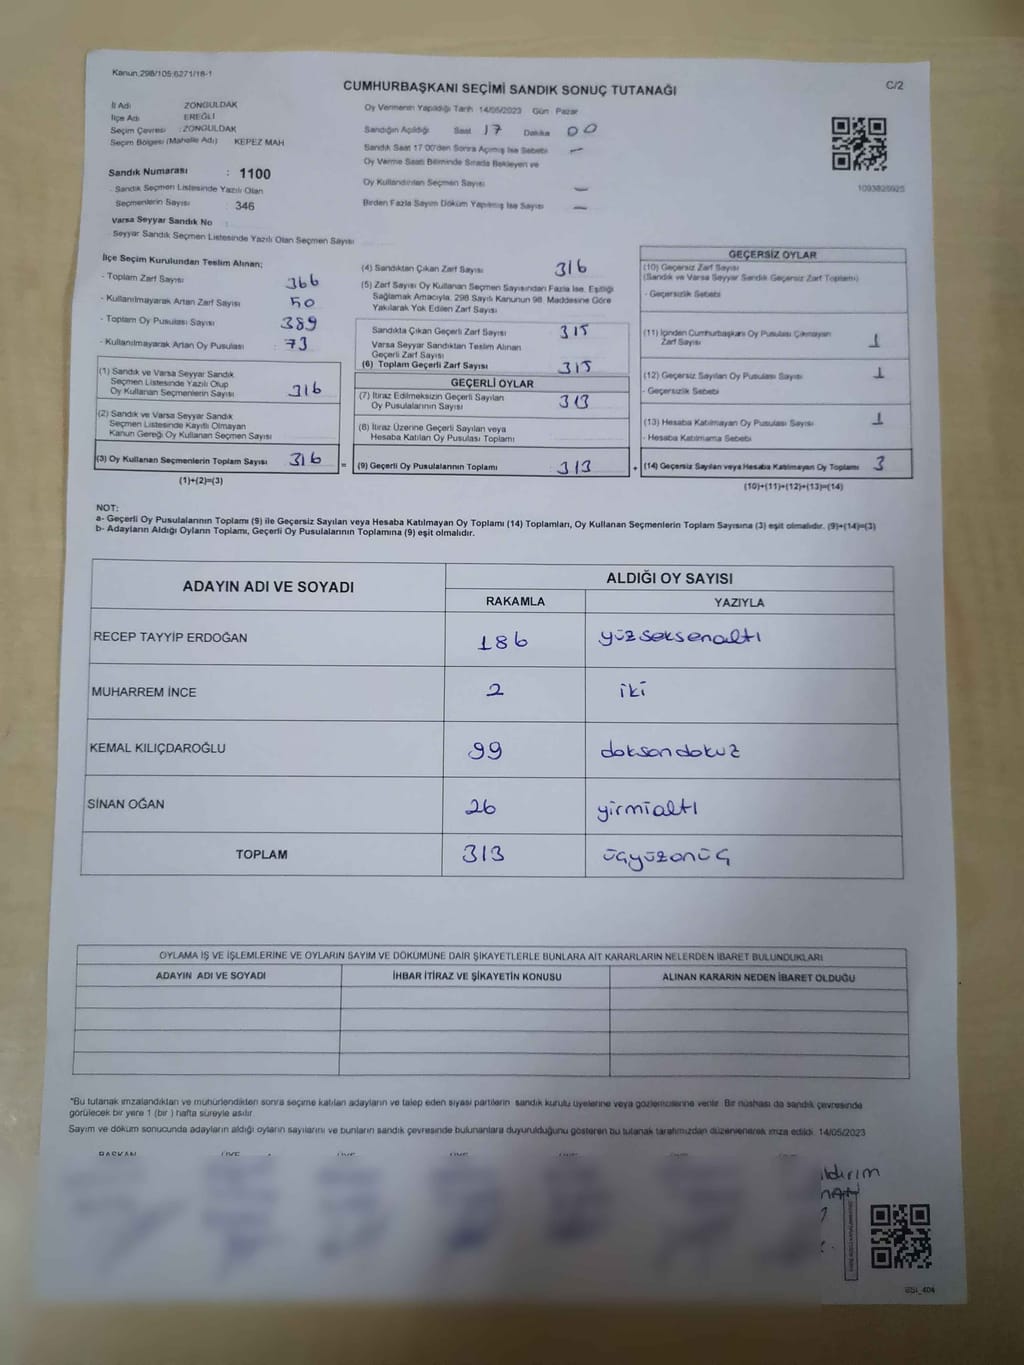 Kanun:298/105:6271/18-1
CUMHURBAŞKANI SEÇİMİ SANDIK SONUÇ TUTANAĞI
C/2
İl Adı : ZONGULDAK
İlçe Adı : EREĞLİ
Seçim Çevresi : ZONGULDAK
Seçim Bölgesi (Mahalle Adı) KEPEZ MAH
Sandık Numarası : 1100
- Sandık Seçmen Listesinde Yazılı Olan
Seçmenlerin Sayısı : 346
Varsa Seyyar Sandık No :
- Seyyar Sandık Seçmen Listesinde Yazılı Olan Seçmen Sayısı
Oy Vermenin Yapıldığı Tarih 14/05/2023 Gün Pazar
Sandığın Açıldığı Saat 17 Dakika 00
Sandık Saat 17:00'den Sonra Açılmış İse Sebebi —
Oy Verme Saati Bitiminde Sırada Bekleyen ve
Oy Kullandırılan Seçmen Sayısı —
Birden Fazla Sayım Döküm Yapılmış İse Sayısı —
1093829925
İlçe Seçim Kurulundan Teslim Alınan;
- Toplam Zarf Sayısı : 366
- Kullanılmayarak Artan Zarf Sayısı : 50
- Toplam Oy Pusulası Sayısı : 389
- Kullanılmayarak Artan Oy Pusulası : 73
(1) Sandık ve Varsa Seyyar Sandık
Seçmen Listesinde Yazılı Olup
Oy Kullanan Seçmenlerin Sayısı : 316
(2) Sandık ve Varsa Seyyar Sandık
Seçmen Listesinde Kayıtlı Olmayan
Kanun Gereği Oy Kullanan Seçmen Sayısı :
(3) Oy Kullanan Seçmenlerin Toplam Sayısı : 316
(1)+(2)=(3)
(4) Sandıktan Çıkan Zarf Sayısı : 316
(5) Zarf Sayısı Oy Kullanan Seçmen Sayısından Fazla İse, Eşitliği
Sağlamak Amacıyla, 298 Sayılı Kanunun 98. Maddesine Göre
Yakılarak Yok Edilen Zarf Sayısı :
Sandıkta Çıkan Geçerli Zarf Sayısı : 315
Varsa Seyyar Sandıktan Teslim Alınan
Geçerli Zarf Sayısı :
(6) Toplam Geçerli Zarf Sayısı : 315
GEÇERLİ OYLAR
(7) İtiraz Edilmeksizin Geçerli Sayılan
Oy Pusulalarının Sayısı : 313
(8) İtiraz Üzerine Geçerli Sayılan veya
Hesaba Katılan Oy Pusulası Toplamı :
= (9) Geçerli Oy Pusulalarının Toplamı : 313
GEÇERSİZ OYLAR
(10) Geçersiz Zarf Sayısı
(Sandık ve Varsa Seyyar Sandık Geçersiz Zarf Toplamı)
- Geçersizlik Sebebi
(11) İçinden Cumhurbaşkanı Oy Pusulası Çıkmayan
Zarf Sayısı : 1
(12) Geçersiz Sayılan Oy Pusulası Sayısı : 1
- Geçersizlik Sebebi
(13) Hesaba Katılmayan Oy Pusulası Sayısı : 1
- Hesaba Katılmama Sebebi
+ (14) Geçersiz Sayılan veya Hesaba Katılmayan Oy Toplamı : 3
(10)+(11)+(12)+(13)=(14)
NOT:
a- Geçerli Oy Pusulalarının Toplamı (9) ile Geçersiz Sayılan veya Hesaba Katılmayan Oy Toplamı (14) Toplamları, Oy Kullanan Seçmenlerin Toplam Sayısına (3) eşit olmalıdır. (9)+(14)=(3)
b- Adayların Aldığı Oyların Toplamı, Geçerli Oy Pusulalarının Toplamına (9) eşit olmalıdır.
ADAYIN ADI VE SOYADI
ALDIĞI OY SAYISI
RAKAMLA YAZIYLA
RECEP TAYYİP ERDOĞAN 186 yüzseksenaltı
MUHARREM İNCE 2 iki
KEMAL KILIÇDAROĞLU 99 doksandokuz
SİNAN OĞAN 26 yirmialtı
TOPLAM 313 üçyüzonüç
OYLAMA İŞ VE İŞLEMLERİNE VE OYLARIN SAYIM VE DÖKÜMÜNE DAİR ŞİKAYETLERLE BUNLARA AİT KARARLARIN NELERDEN İBARET BULUNDUKLARI
ADAYIN ADI VE SOYADI İHBAR İTİRAZ VE ŞİKAYETİN KONUSU ALINAN KARARIN NEDEN İBARET OLDUĞU
"Bu tutanak imzalandıktan ve mühürlendikten sonra seçime katılan adayların ve talep eden siyasi partilerin sandık kurulu üyelerine veya gözlemcilerine verilir. Bir nüshası da sandık çevresinde
görülecek bir yere 1 (bir ) hafta süreyle asılır.
Sayım ve döküm sonucunda adayların aldığı oyların sayılarını ve bunların sandık çevresinde bulunanlara duyurulduğunu gösteren bu tutanak tarafımızdan düzenlenerek imza edildi. 14/05/2023
BAŞKAN ÜYE ÜYE ÜYE ÜYE ÜYE
ıldırım